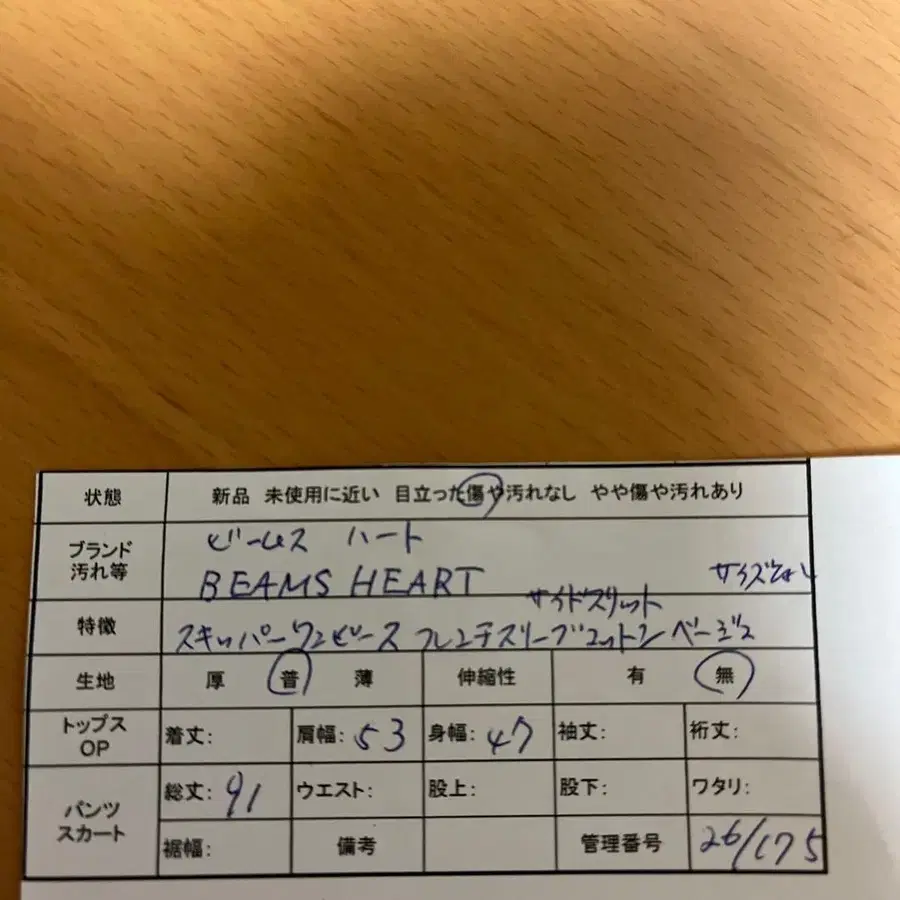 状態 新品 未使用に近い 目立った傷や汚れなし やや傷や汚れあり
ブランド
汚れ等
ビームス ハート
BEAMS HEART
サイズなし
特徴
サイドスリット
スキッパーワンピース フレンチスリーブコットンベージュ
生地 厚 普 薄 伸縮性 有 無
トップス
OP
着丈: 肩幅: 53 身幅: 47 袖丈: 裄丈:
パンツ
スカート
総丈: 91 ウエスト: 股上: 股下: ワタリ:
裾幅: 備考 管理番号 26/175